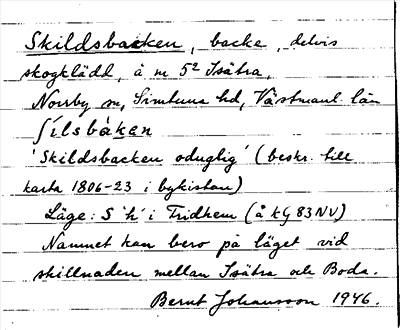 Skildsbacken, backe, delvis
skogklädd, å m 5² Isätra,
Norrby sn, Simtuna hd, Västmanl. län
ʃílsbàkεn
'Skildsbacken oduglig' (beskr. till
karta 1806-23 i bykistan)
Läge: S 'h' i Fridhem (å kG 83 NV)
Namnet kan bero på läget vid
skillnaden mellan Isätra och Boda.
Bernt Johansson 1946.